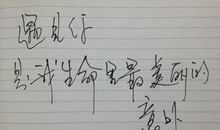 遇见你
是我生命里最美丽的
意外